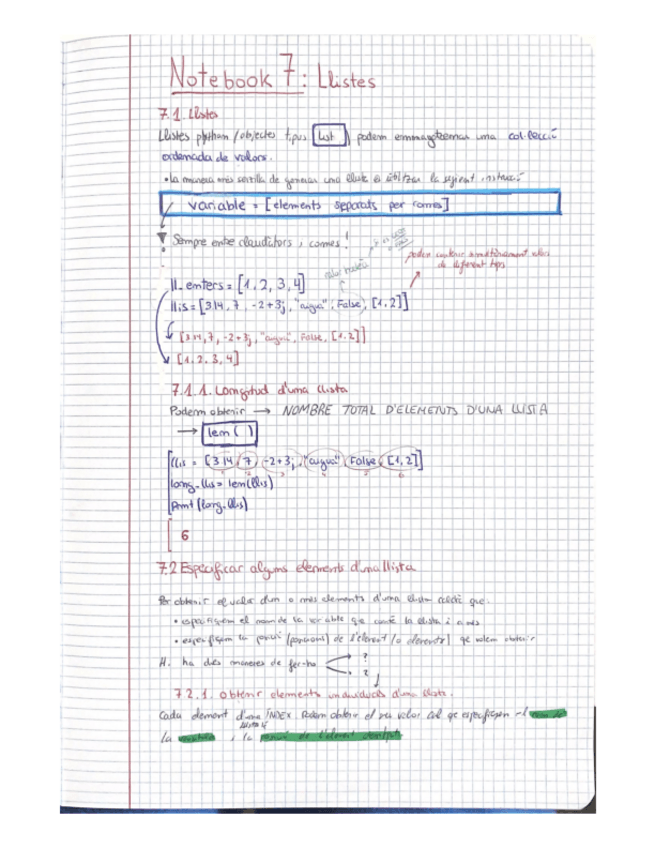 Notebook 7: Llistes
7.1. Llistes
Llistes python (objectes tipus list) podem emmagatzemar una col·lecció
ordenada de valors.
• La manera més sencilla de generar una llista és utilitzar la següent instrucció
variable = [elements separats per comes]
Sempre entre claudàtors i comes!
poden contenir simultàniament valors
de diferent tipus
ll_enters = [1, 2, 3, 4]
llis = [3.14, 7, -2+3j, "aigua", False, [1,2]]
[3.14, 7, -2+3j, "aigua", False, [1,2]]
[1, 2, 3, 4]
7.1.1. Longitud d'una llista
Podem obtenir → NOMBRE TOTAL D'ELEMENTS D'UNA LLISTA
→ len( )
llis = [3.14, 7, -2+3j, "aigua", False, [1,2]]
1 2 3 4 5 6
long_llis = len(llis)
print(long_llis)
6
7.2 Especificar alguns elements d'una llista
Per obtenir el valor d'un o més elements d'una llista caldrà que:
• especifiquem el nom de la variable que conté la llista i a més
• especifiquem la posició (posicions) de l'element (o elements) que volem obtenir
Hi ha dues maneres de fer-ho
?
?
7.2.1. Obtenir elements individuals d'una llista.
Cada element d'una ÍNDEX. Podem obtenir el seu valor cal que especifiquem el nom de
llista té
la variable i la posició de l'element